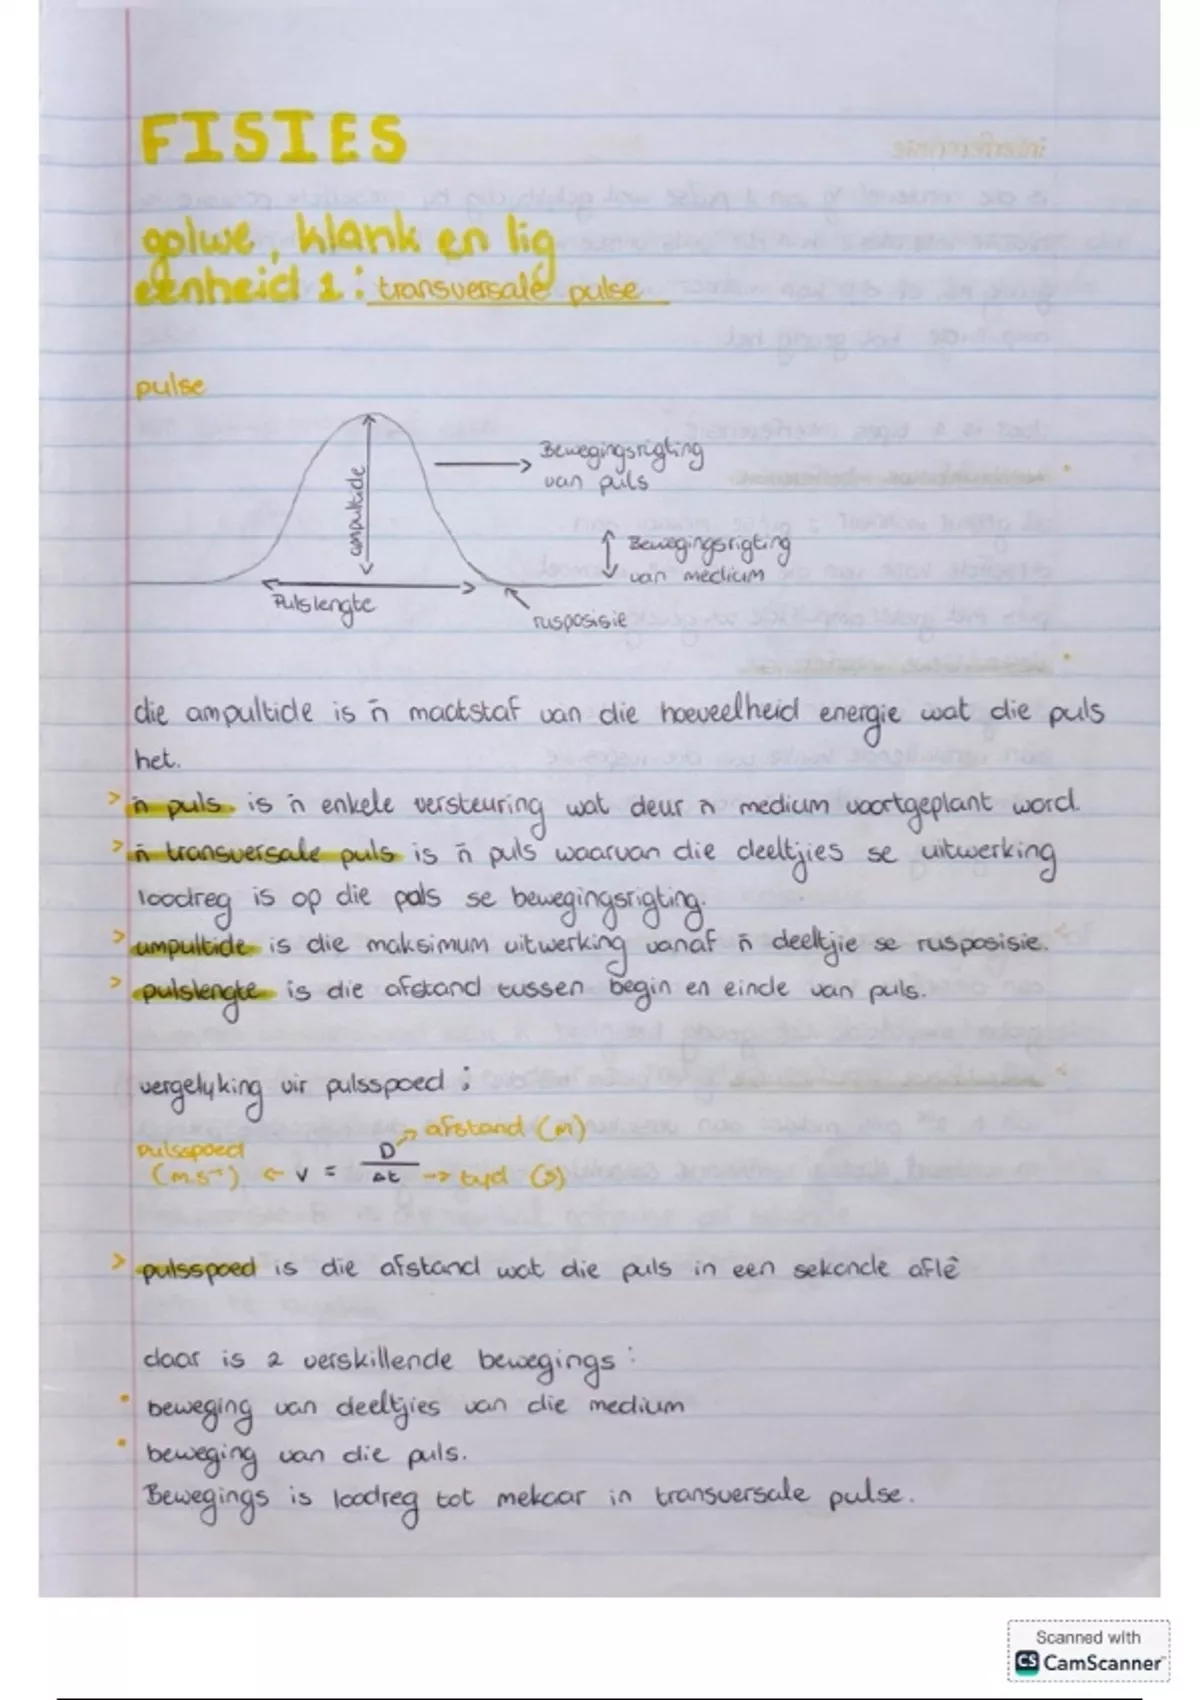 FISIES
golwe, klank en lig
eenheid 1: transversale pulse
pulse
ampultide
Bewegingsrigting
van puls
Bewegingsrigting
van medium
Pulslengte
rusposisie
die ampultide is ñ maatstaf van die hoeveelheid energie wat die puls
het.
> ñ puls is ñ enkele versteuring wat deur ñ medium voortgeplant word.
> ñ transversale puls is ñ puls waarvan die deeltjies se uitwerking
loodreg is op die puls se bewegingsrigting.
> ampultide is die maksimum uitwerking vanaf ñ deeltjie se rusposisie.
> pulslengte is die afstand tussen begin en einde van puls.
vergelyking vir pulsspoed :
pulsspoed D → afstand (m)
(m.s⁻¹) ← v = Δt → tyd (s)
> pulsspoed is die afstand wat die puls in een sekonde aflê
daar is 2 verskillende bewegings :
• beweging van deeltjies van die medium
• beweging van die puls.
Bewegings is loodreg tot mekaar in transversale pulse.
Scanned with
CS CamScanner